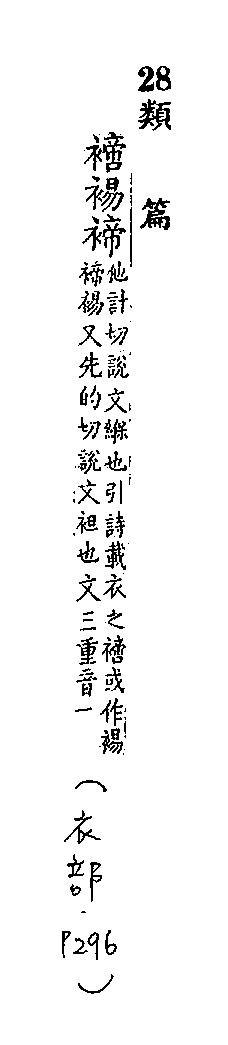 28類 篇
𧝐裼褅
他計切說文緥也引詩載衣之𧝐或作裼
褅裼又先的切說文袒也文三重音一
(衣部.P296)